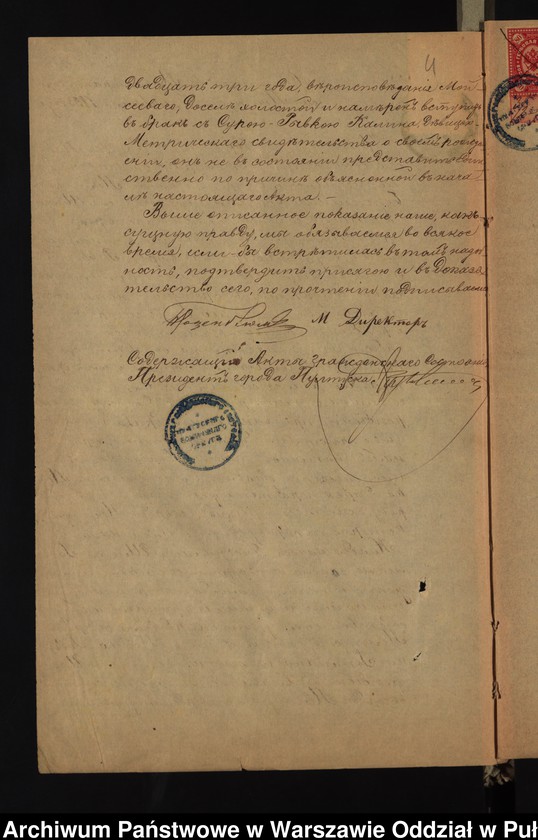 4
двадцать три года, вѣроисповѣданія Мои
сеева, доселѣ холостой и намѣренъ вступить
въ бракъ съ Сурою-Рывкою Калина Дѣвицею
Метрическаго свидѣтельства о своемъ рожде
ніи, онъ не въ состояніи представить
ственно по причинѣ объясненной въ нача
лѣ настоящаго Акта. —
Выше описанное показаніе наше, какъ
сущную правду, мы обязываемся во всякое
время, если-бы встрѣтилась въ томъ надоб
ность, подтвердить присягою и въ доказа
тельство сего, по прочтеніи подписываемъ
М Директоръ
Содержащій Акты Гражданскаго Состоянія
Президентъ города Пултуска
Archiwum Państwowe w Warszawie Oddział w Puł